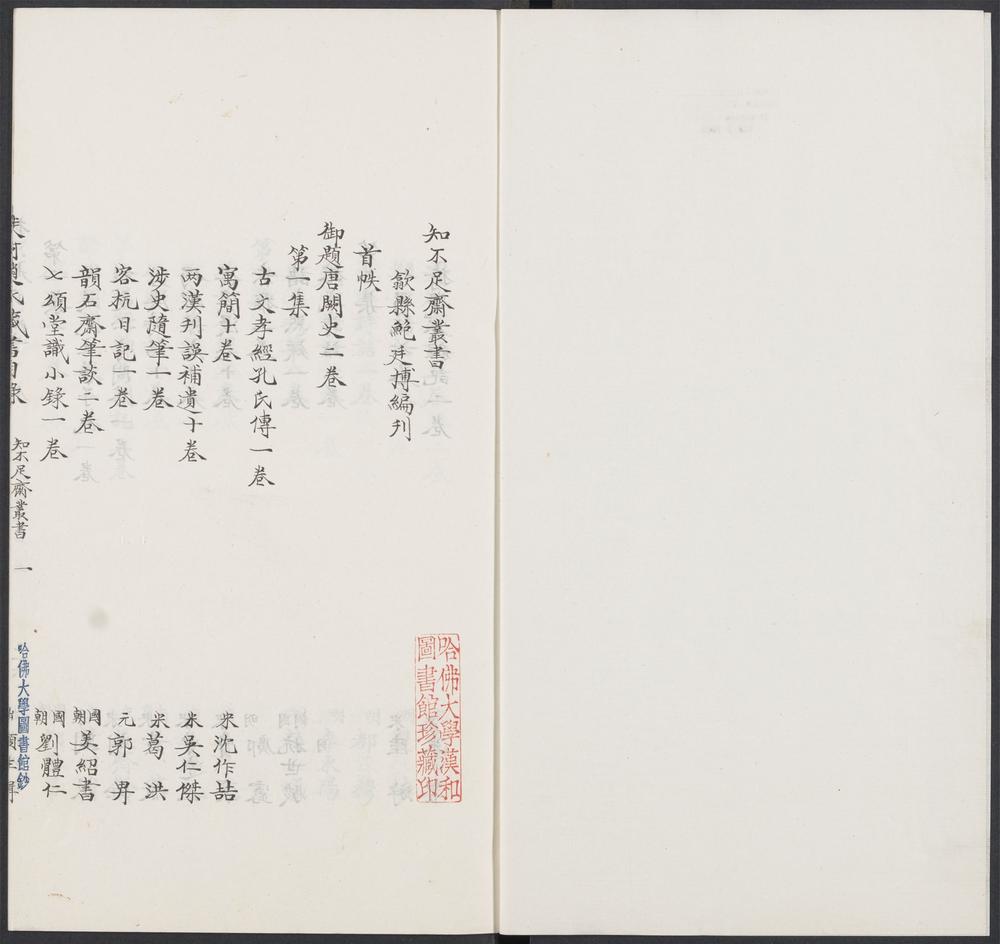 知不足齋叢書
歙縣鮑廷搏編刋
首帙
御題唐闕史二卷
第一集
古文孝經孔氏傳一卷
寓簡十卷 宋沈作喆
两漢刋誤補遺十卷 宋吳仁傑
涉史隨筆一卷 宋葛洪
客杭日記一卷 元郭畀
韻石齋筆談二卷 國朝姜紹書
七頌堂識小錄一卷 國朝劉體仁
知不足齋叢書 一
哈佛大學圖書館鈔
哈佛大學漢和
圖書館珍藏印